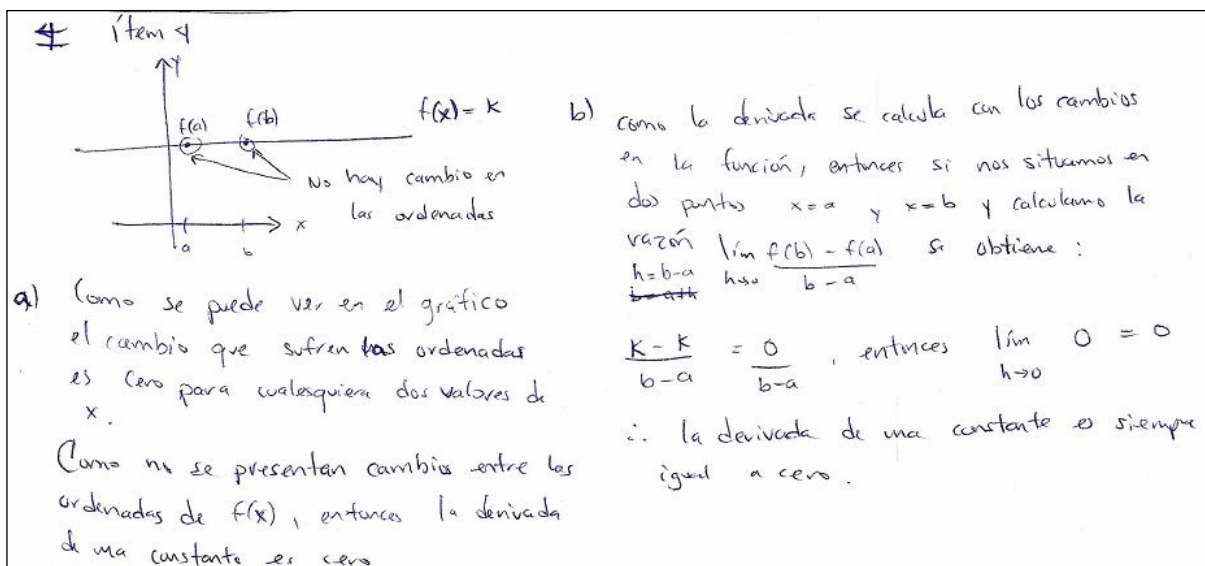 4 ítem 4
y
f(a) f(b)
f(x) = k
No hay cambio en
las ordenadas
x
a b
a) Como se puede ver en el gráfico
el cambio que sufren las ordenadas
es cero para cualesquiera dos valores de
x.
Como no se presentan cambios entre las
ordenadas de f(x), entonces la derivada
de una constante es cero
b) como la derivada se calcula con los cambios
en la función, entonces si nos situamos en
dos puntos x=a y x=b y calculamo la
razón lím f(b) - f(a) / b - a se obtiene:
h=b-a h→0
b=a+h
k - k / b - a = 0 / b-a , entonces lím 0 = 0
h→0
∴ la derivada de una constante es siempre
igual a cero.